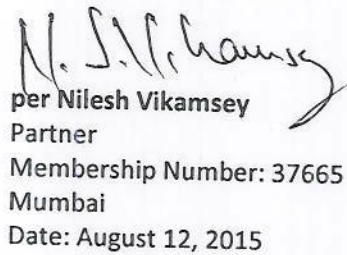 N. S. Vikamsey
per Nilesh Vikamsey
Partner
Membership Number: 37665
Mumbai
Date: August 12, 2015